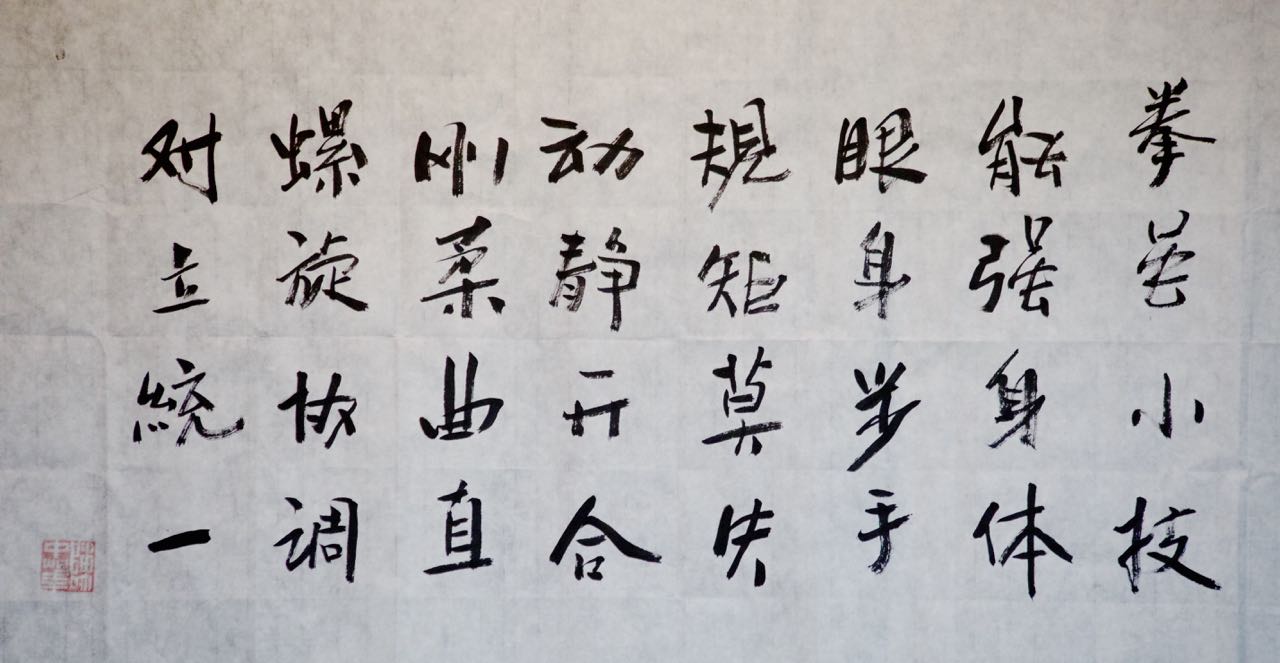 拳虽小技
能强身体
眼身步手
规矩莫失
动静开合
刚柔曲直
螺旋协调
对立統一